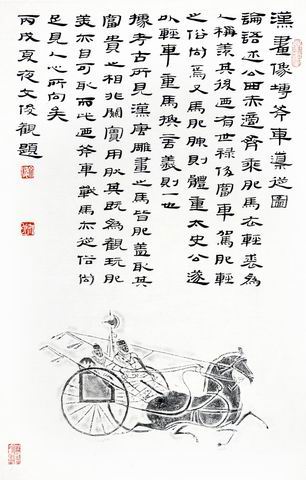 漢畫像塼斧車導從圖
論語述公西赤適齊乘肥馬衣輕裘為
人稱羨其後迺有世祿侈富車駕肥輕
之俗尚焉又馬肥腴則體重太史公遂
以輕車重馬換言義則一也
據考古所見漢唐雕畫之馬皆肥蓋取其
富貴之相非關實用故其既為觀玩肥
美亦自可取而此迺斧車戰馬亦從俗尚
足見人心所向矣
丙戌夏夜文俊觀題